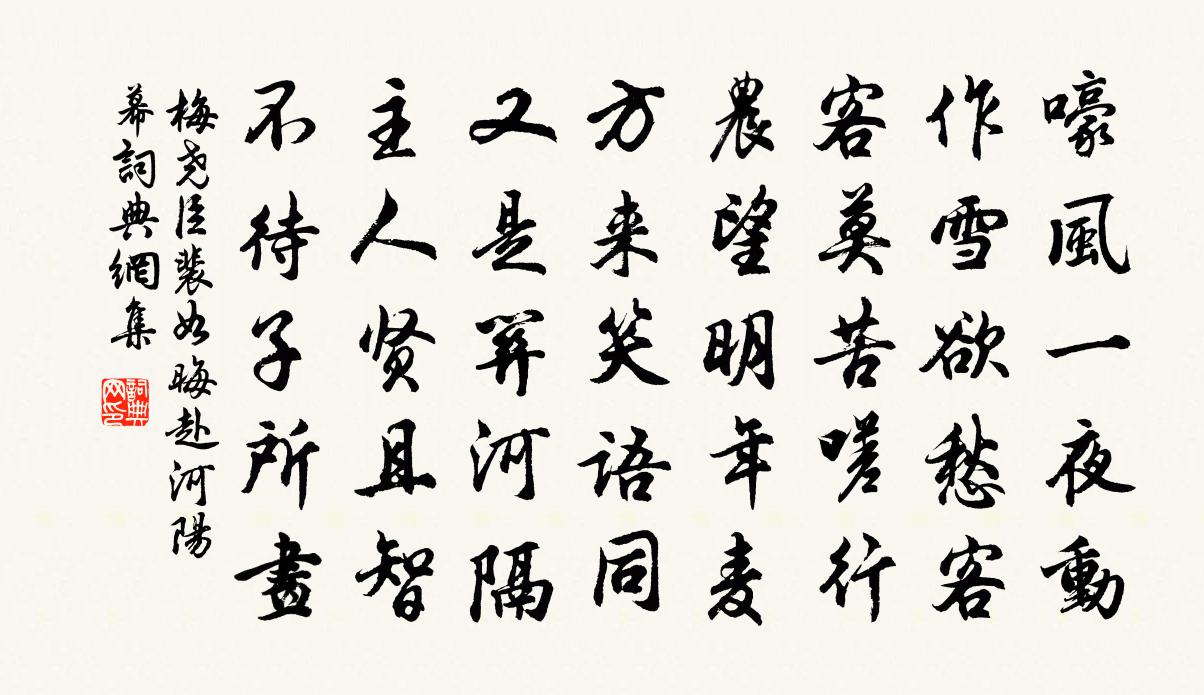 嚎風一夜動
作雪欲愁客
客莫苦嗟行
農望明年麦
方来笑語同
又是关河隔
主人贤且智
不待子所畫
梅尧臣裴如晦赴河陽
幕詞典網集
詞典网印